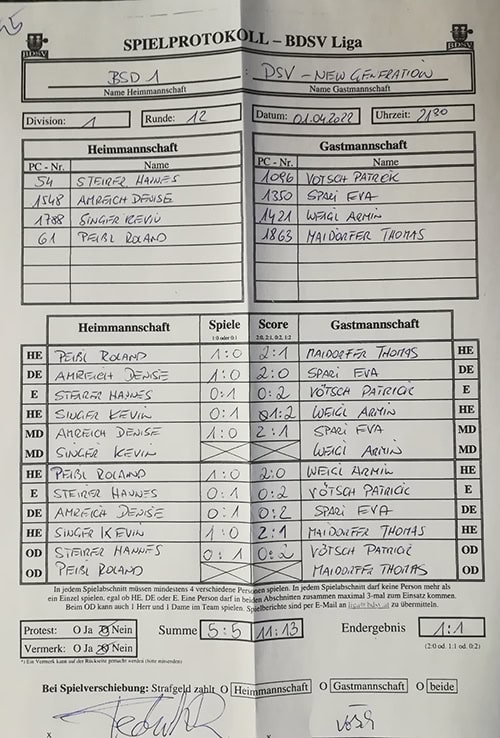 BDSV BDSV
SPIELPROTOKOLL – BDSV Liga
BSD 1 : DSV - NEW GENERATION
Name Heimmannschaft Name Gastmannschaft
Division: 1 Runde: 12 Datum: 01.04.2022 Uhrzeit: 2130
Heimmannschaft Gastmannschaft
PC - Nr. Name PC - Nr. Name
54 STEIRER HANNES 1096 VÖTSCH PATRICK
1548 AMREICH DENISE 1350 SPARI EVA
1788 SINGER KEVIN 1421 WEIGL ARMIN
61 PEIßL ROLAND 1863 MAIDORFER THOMAS
Heimmannschaft Spiele Score Gastmannschaft
1:0 oder 0:1 2:0, 2:1, 0:2, 1:2
HE PEIßL ROLAND 1:0 2:1 MAIDORFER THOMAS HE
DE AMREICH DENISE 1:0 2:0 SPARI EVA DE
E STEIRER HANNES 0:1 0:2 VÖTSCH PATRICK E
HE SINGER KEVIN 0:1 1:2 WEIGL ARMIN HE
MD AMREICH DENISE 1:0 2:1 SPARI EVA MD
MD SINGER KEVIN WEIGL ARMIN MD
HE PEIßL ROLAND 1:0 2:0 WEIGL ARMIN HE
E STEIRER HANNES 0:1 0:2 VÖTSCH PATRICK E
DE AMREICH DENISE 0:1 0:2 SPARI EVA DE
HE SINGER KEVIN 1:0 2:1 MAIDORFER THOMAS HE
OD STEIRER HANNES 0:1 0:2 VÖTSCH PATRICK OD
OD PEIßL ROLAND MAIDORFER THOMAS OD
In jedem Spielabschnitt müssen mindestens 4 verschiedene Personen spielen. In jedem Spielabschnitt darf keine Person mehr als
ein Einzel spielen, egal ob HE, DE oder E. Eine Person darf in beiden Abschnitten zusammen maximal 3-mal zum Einsatz kommen.
Beim OD kann auch 1 Herr und 1 Dame im Team spielen. Spielberichte sind per E-Mail an liga@bdsv.at zu übermitteln.
Protest: O Ja O Nein Summe 5:5 11:13 Endergebnis 1:1
Vermerk: O Ja O Nein (2:0 od. 1:1 od. 0:2)
*) Ein Vermerk kann auf der Rückseite gemacht werden (bitte mitsenden)
Bei Spielverschiebung: Strafgeld zahlt O Heimmannschaft O Gastmannschaft O beide
x x